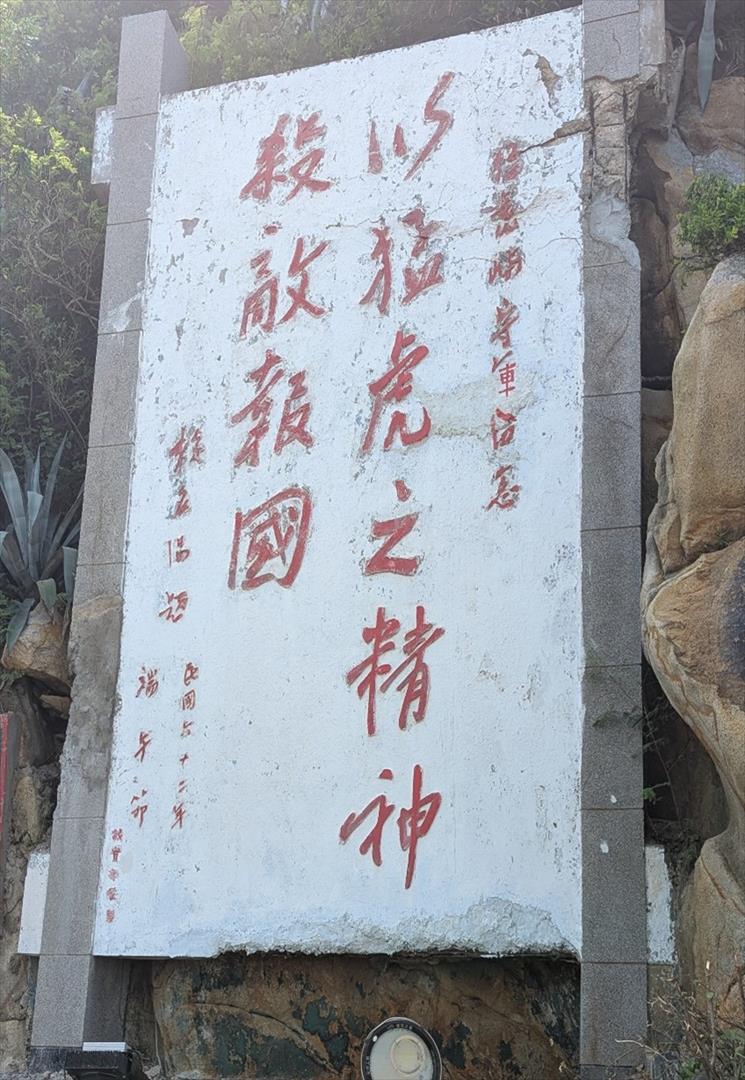 守軍留念
以猛虎之精神
殺敵報國
題
民國六十二年
端午節